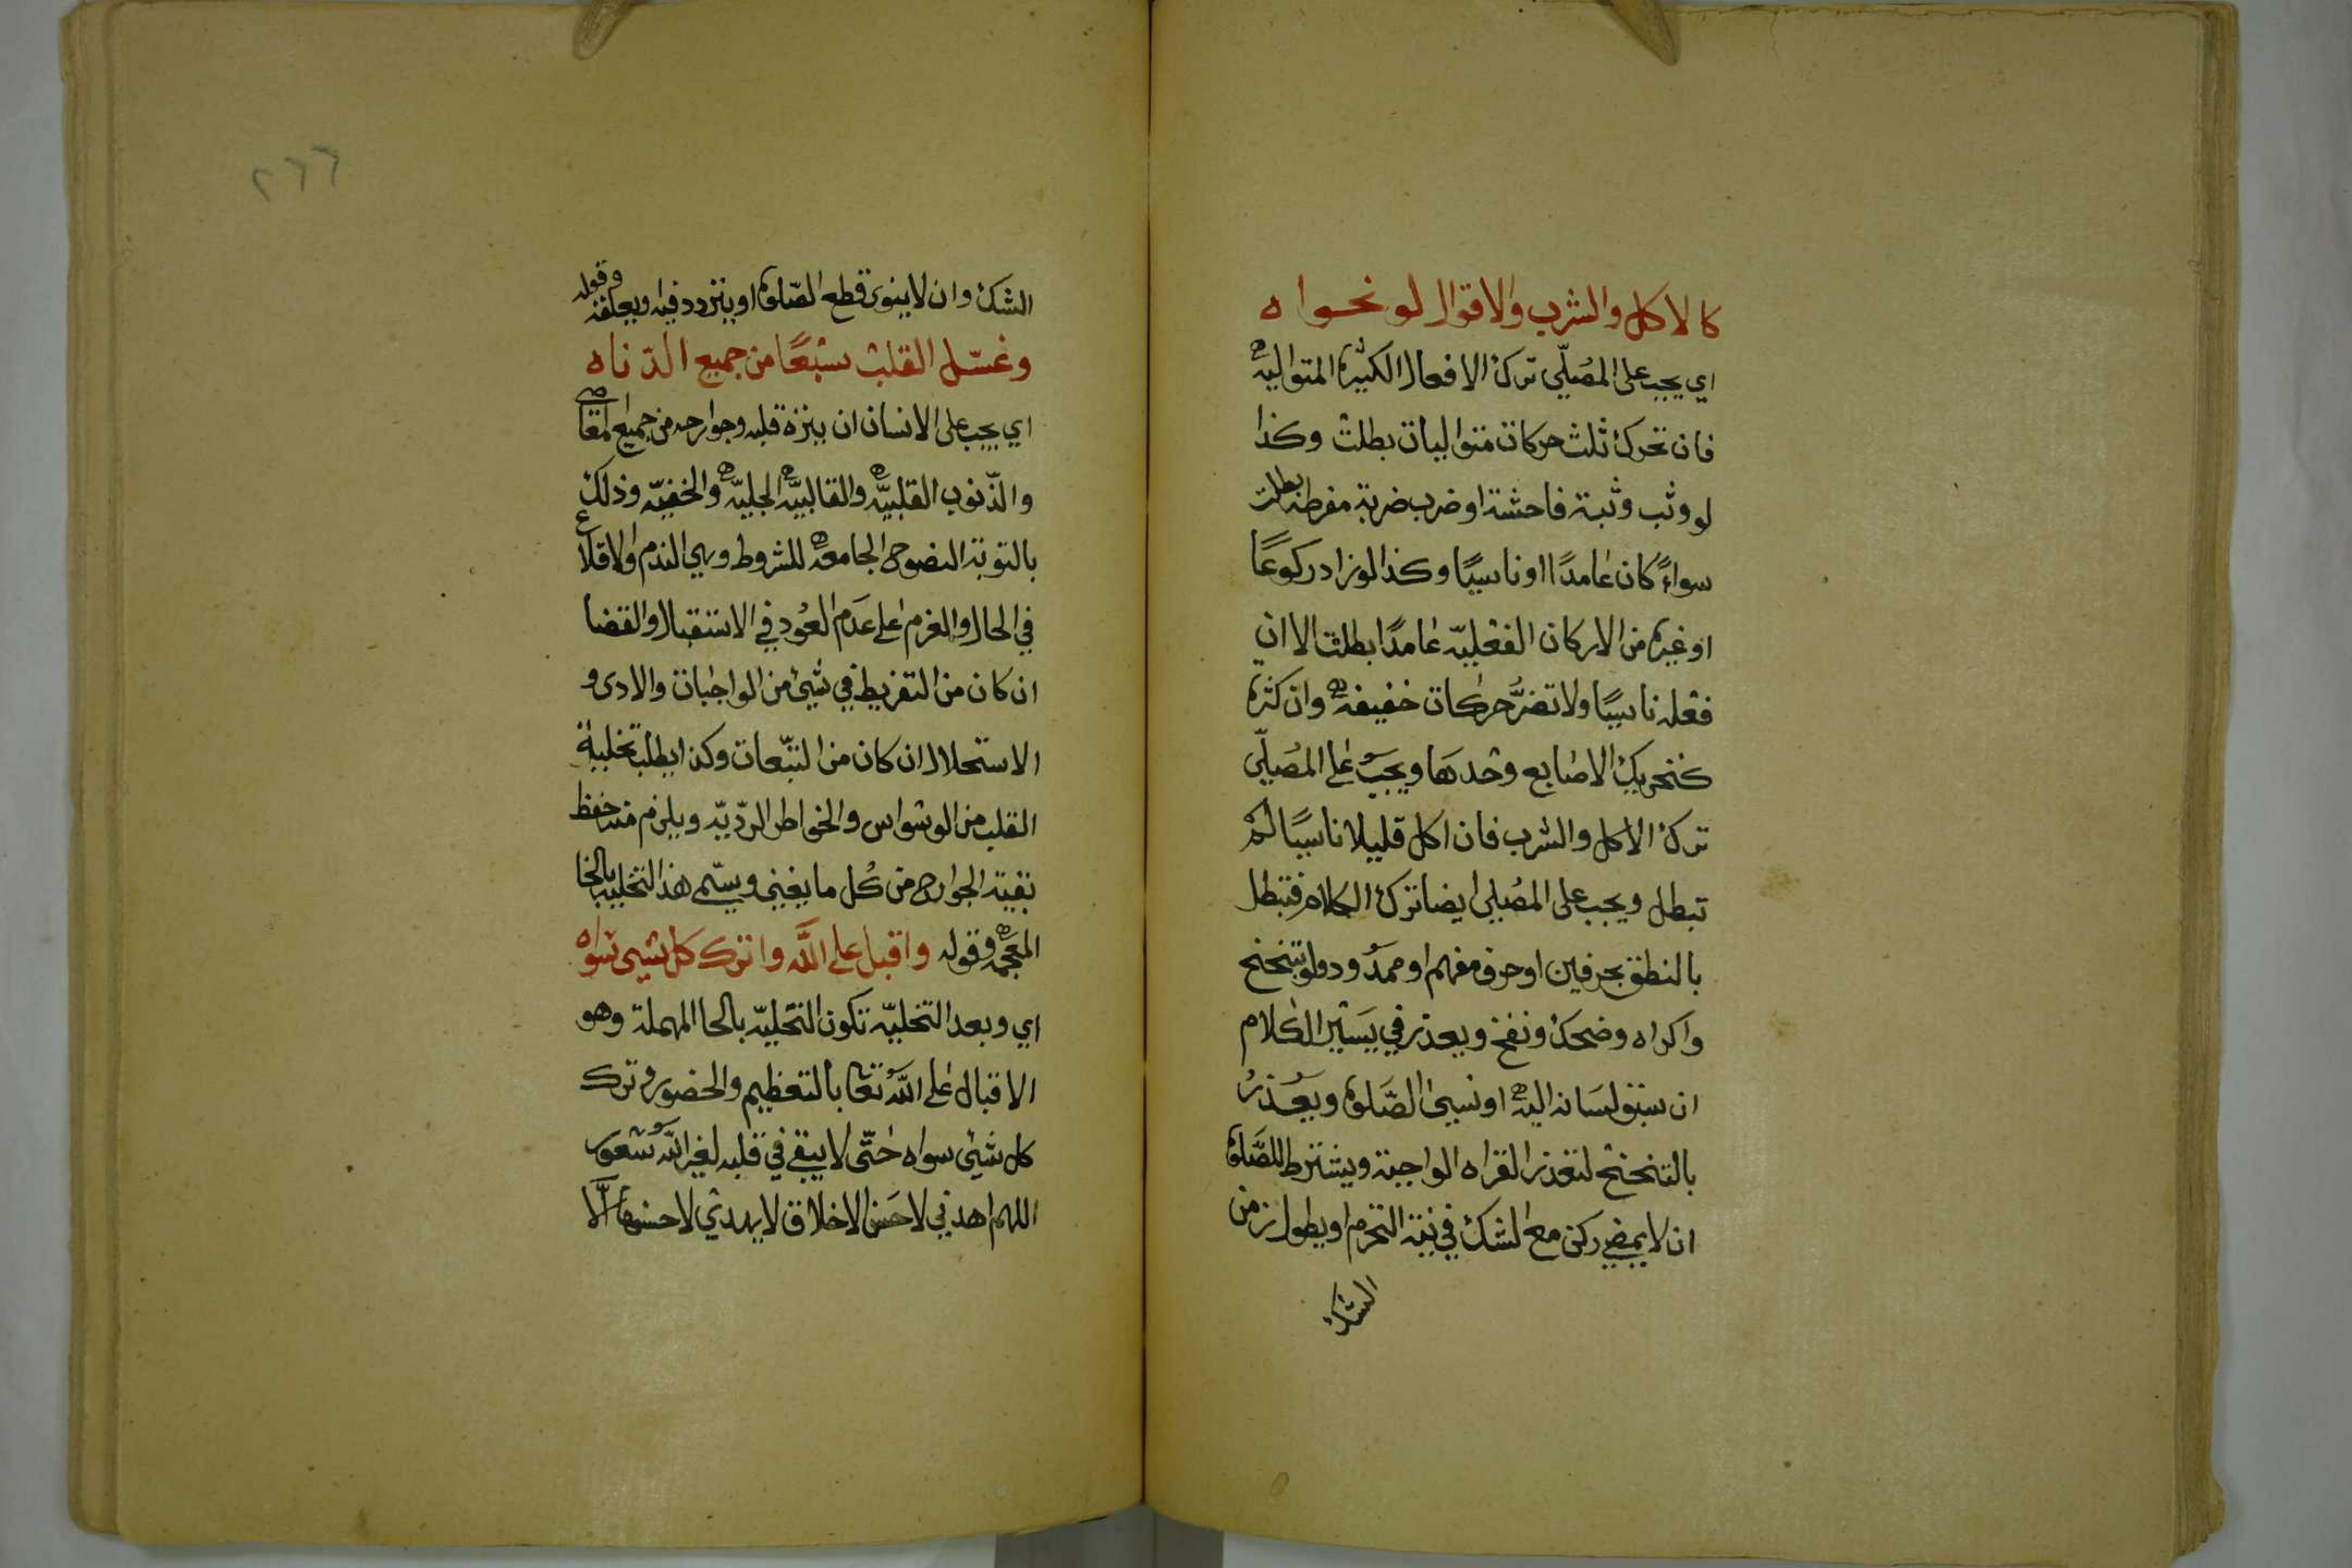 كالاكل والشرب والاقوال لو نحواه
اي يجب على المصلّي ترك الافعال الكثيرة المتواليه
فان تحرك ثلث حركات متواليات بطلت وكذا
لو وثب وثبة فاحشة او ضرب ضربة مفرطه بطلت
سواءً كان عامدًا او ناسيًا وكذا لو زاد ركوعًا
او غيره من الاركان الفعليّه عامدًا بطلت الا ان
فعله ناسيًا ولا تضرُّ حركات خفيفه وان كثره
كتحريك الاصابع وحدها ويجب على المصلّي
ترك الاكل والشرب فان اكل قليلا ناسيًا لم
تبطل ويجب على المصلي ايضا ترك الكلام فتبطل
بالنطق بحرفين او حرف مفهم او ممدود ولو بتنحنح
واكراه وضحك ونفخ ويعذر في يسير الكلام
ان سبق لسانه اليه او نسي الصّلوة ويعذر
بالتنحنح لتعذر القراه الواجبة ويشترط للصّلوة
ان لا يمضي ركن مع الشك في نية التحرم او يطول زمن
الشك
٢٦٦
الشك وان لا ينوي قطع الصّلوة او يتردد فيه ويعلقه وقوله
وغسّل القلب سبعًا من جميع الدناه
اي يجب على الانسان ان ينزه قلبه وجوارحه من جميع المعاصي
والذّنوب القلبيّه والقالبيّه الجليّه والخفيّه وذلك
بالتوبة النصوح الجامعه للشروط وهي الندم والاقلاع
في الحال والعزم على عدم العود في الاستقبال والقضا
ان كان من التفريط في شيئ من الواجبات والادى و
الاستحلال ان كان من التبّعات وكذا يطلب تخلية
القلب من الوسواس والخواطر الردّيّه ويلزم منه حفظ
بقية الجوارح من كل ما يغيني ويسّمى هذا التخليه بالخا
المعجمه وقوله واقبل على الله واترك كل شيى سواه
اي وبعد التخليّه تكون التحليّه بالحا المهملة وهو
الاقبال على اللّه تعا بالتعظيم والحضور وترك
كل شيئ سواه حتّى لا يبقى في قلبه لغير اللّه شعور
اللهم اهدني لاحسن الاخلاق لا يهدي لاحسنها الّا